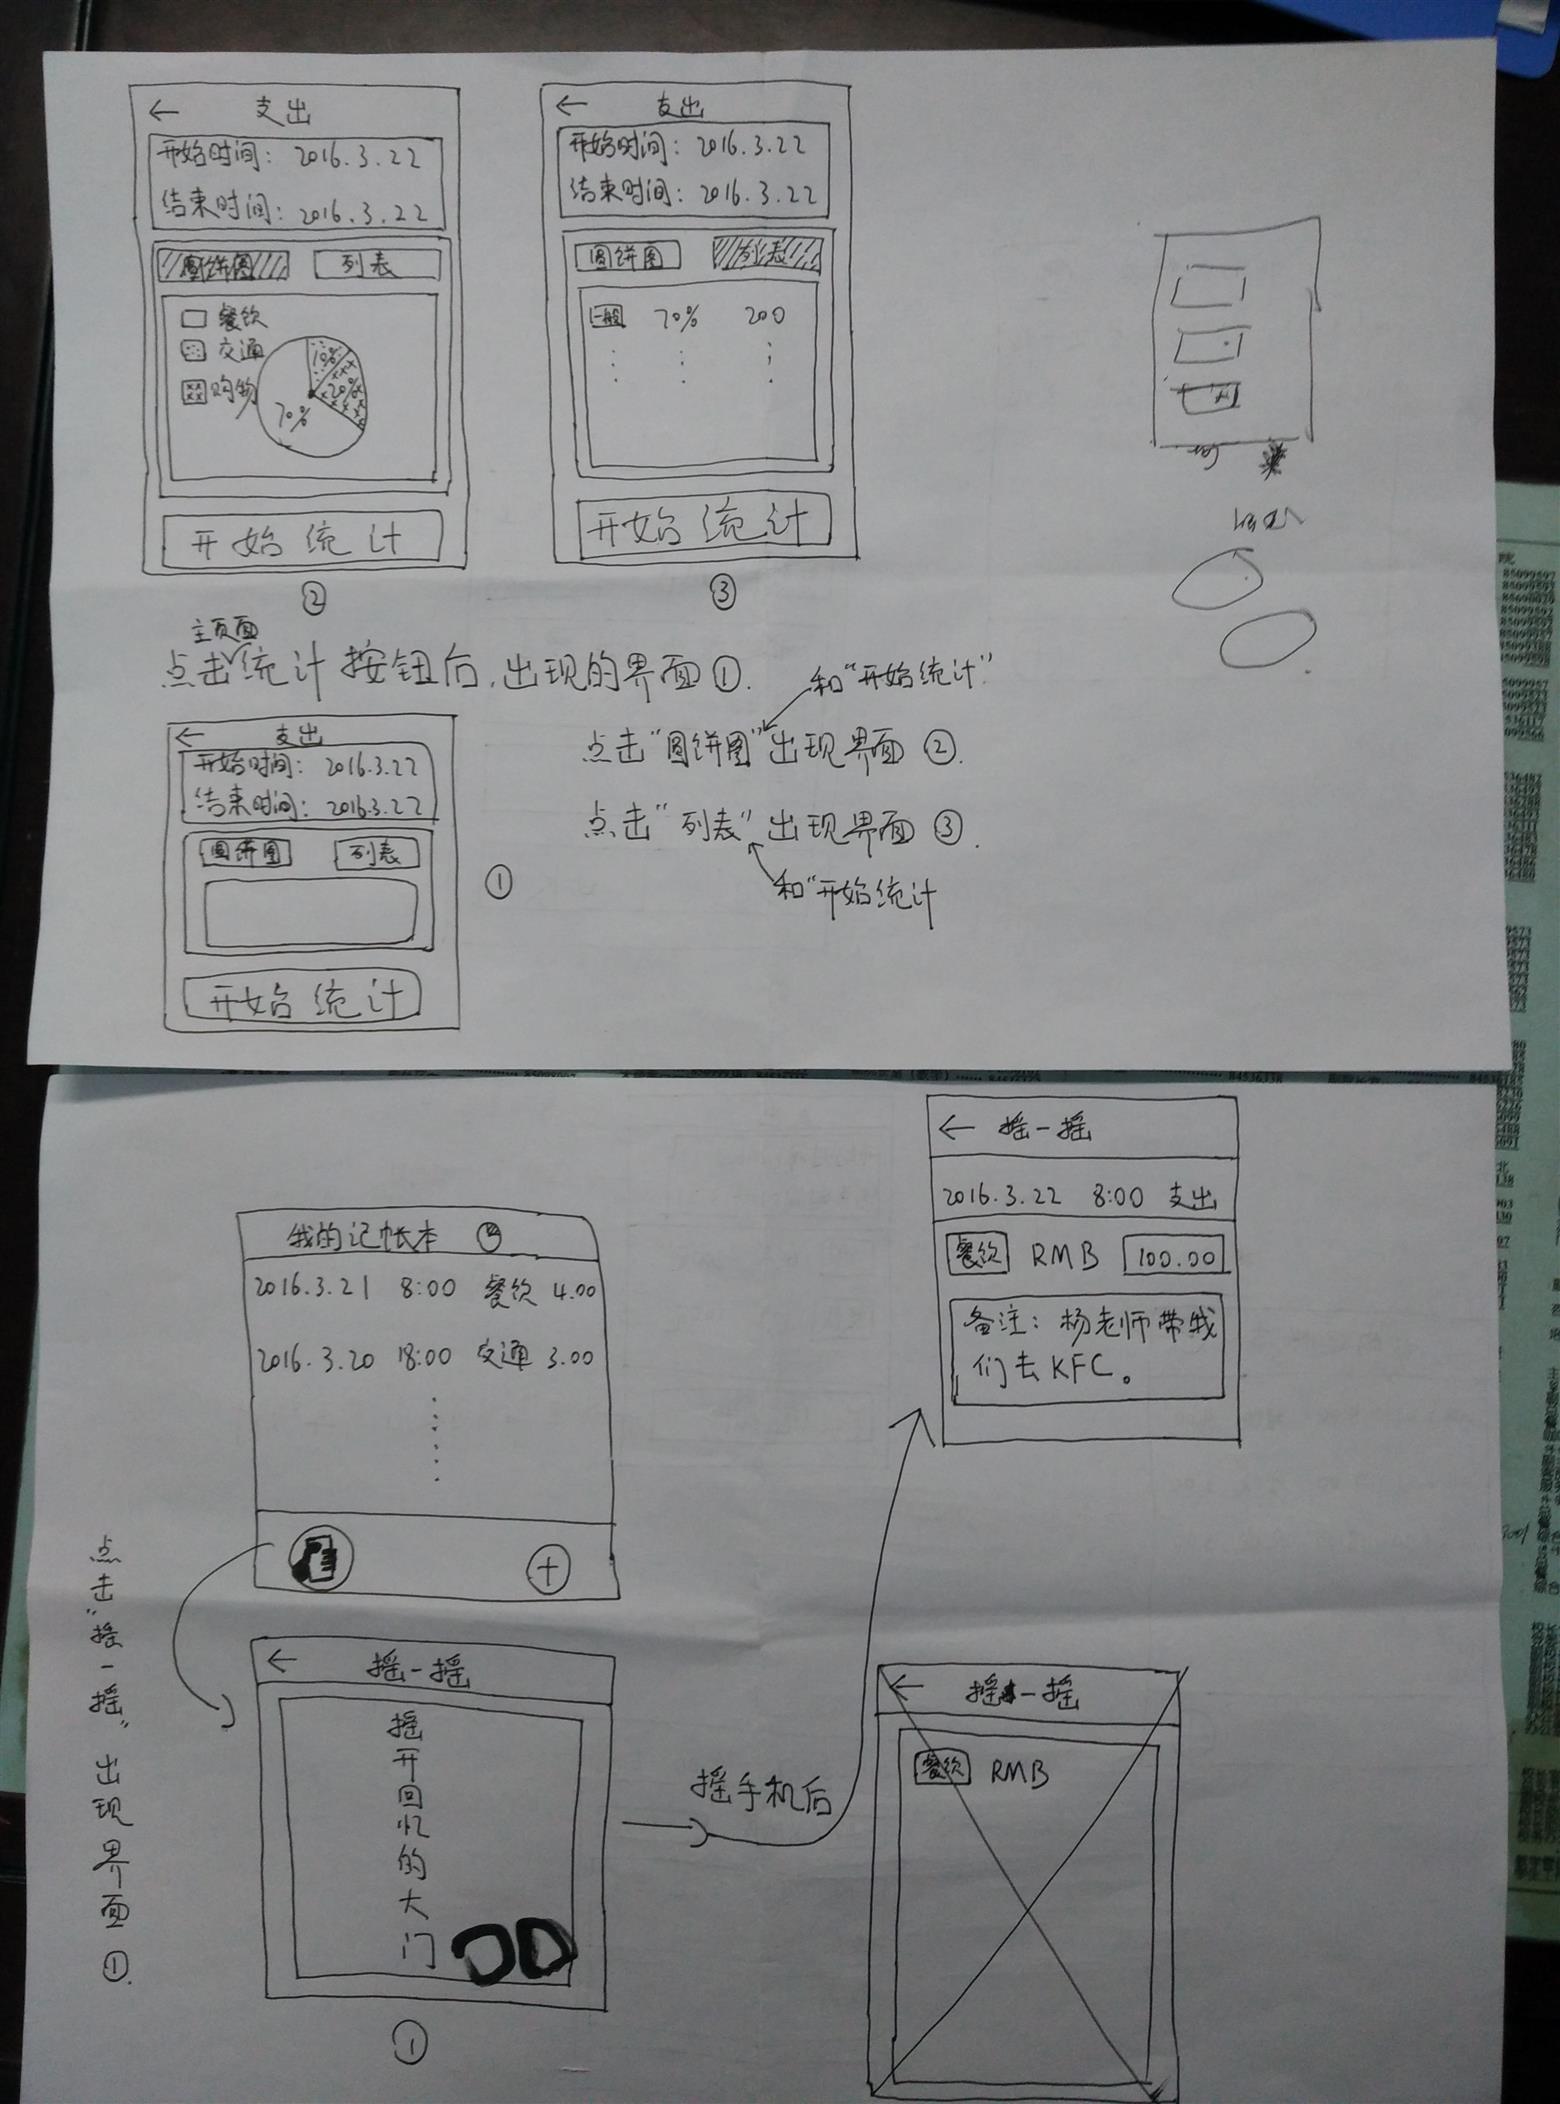 ← 支出
开始时间: 2016.3.22
结束时间: 2016.3.22
圆饼图 列表
餐饮
交通
购物
10%
20%
70%
开始统计
②
← 支出
开始时间: 2016.3.22
结束时间: 2016.3.22
圆饼图 列表
一般 70% 200
开始统计
③
主页面
点击统计按钮后,出现的界面①.
和"开始统计"
点击"圆饼图"出现界面②.
点击"列表"出现界面③.
和"开始统计
← 支出
开始时间: 2016.3.22
结束时间: 2016.3.22
圆饼图 列表
开始统计
①
我的记帐本
2016.3.21 8:00 餐饮 4.00
2016.3.20 18:00 交通 3.00
+
点击"摇一摇"出现界面①.
← 摇一摇
摇开回忆的大门
①
摇手机后
← 摇一摇
2016.3.22 8:00 支出
餐饮 RMB 100.00
备注: 杨老师带我
们去KFC。
← 摇一摇
餐饮 RMB